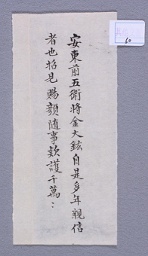 安東前五衛將金大鉉自是多年親信
者也招見賜顔隨事欵護千萬〻